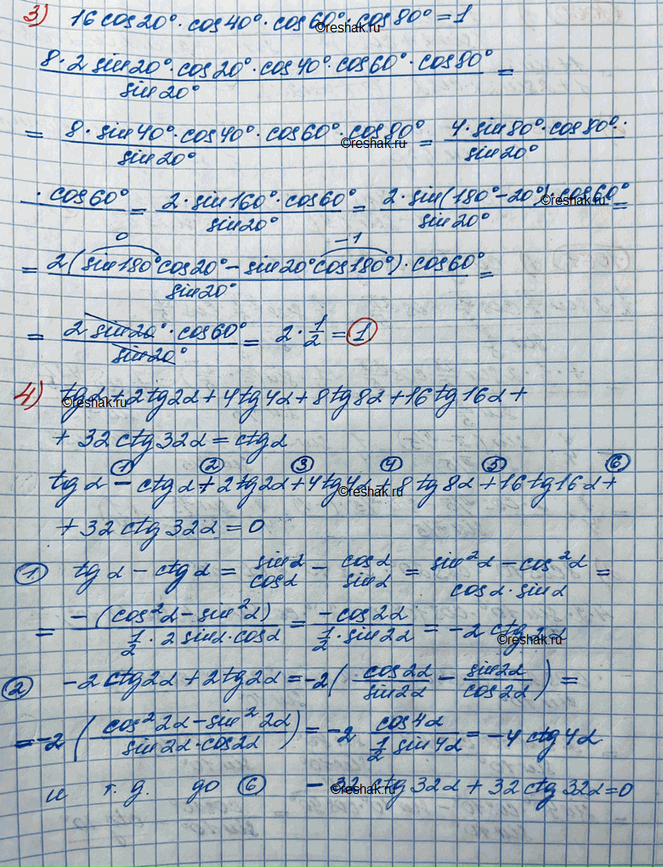 3) 16 cos20°·cos40°·cos60°·cos80°=1
©reshak.ru
8·2 sin20°·cos20°·cos40°·cos60°·cos80° =
sin20°
= 8·sin40°·cos40°·cos60°·cos80° / sin20° = 4·sin80°·cos80°· / sin20°
©reshak.ru
·cos60° = 2·sin160°·cos60° / sin20° = 2·sin(180°-20°)·cos60° / sin20° =
©reshak.ru
0 -1
= 2(sin180°cos20°-sin20°cos180°)·cos60° / sin20° =
= 2 sin20°·cos60° / sin20° = 2·1/2 = 1
4) tgα+2tg2α+4tg4α+8tg8α+16tg16α+
©reshak.ru
+ 32ctg32α=ctgα
1 2 3 4 5 6
tgα-ctgα+2tg2α+4tg4α+8tg8α+16tg16α+
©reshak.ru
+32ctg32α=0
1 tgα-ctgα = sinα/cosα - cosα/sinα = sin²α-cos²α / cosα·sinα =
= -(cos²α-sin²α) / 1/2·2sinα·cosα = -cos2α / 1/2·sin2α = -2ctg2α
©reshak.ru
2 -2ctg2α+2tg2α=-2( cos2α/sin2α - sin2α/cos2α ) =
=-2 ( cos²2α-sin²2α / sin2α·cos2α ) = -2 cos4α / 1/2 sin4α = -4ctg4α
и т.д. до 6 -32ctg32α+32ctg32α=0
©reshak.ru